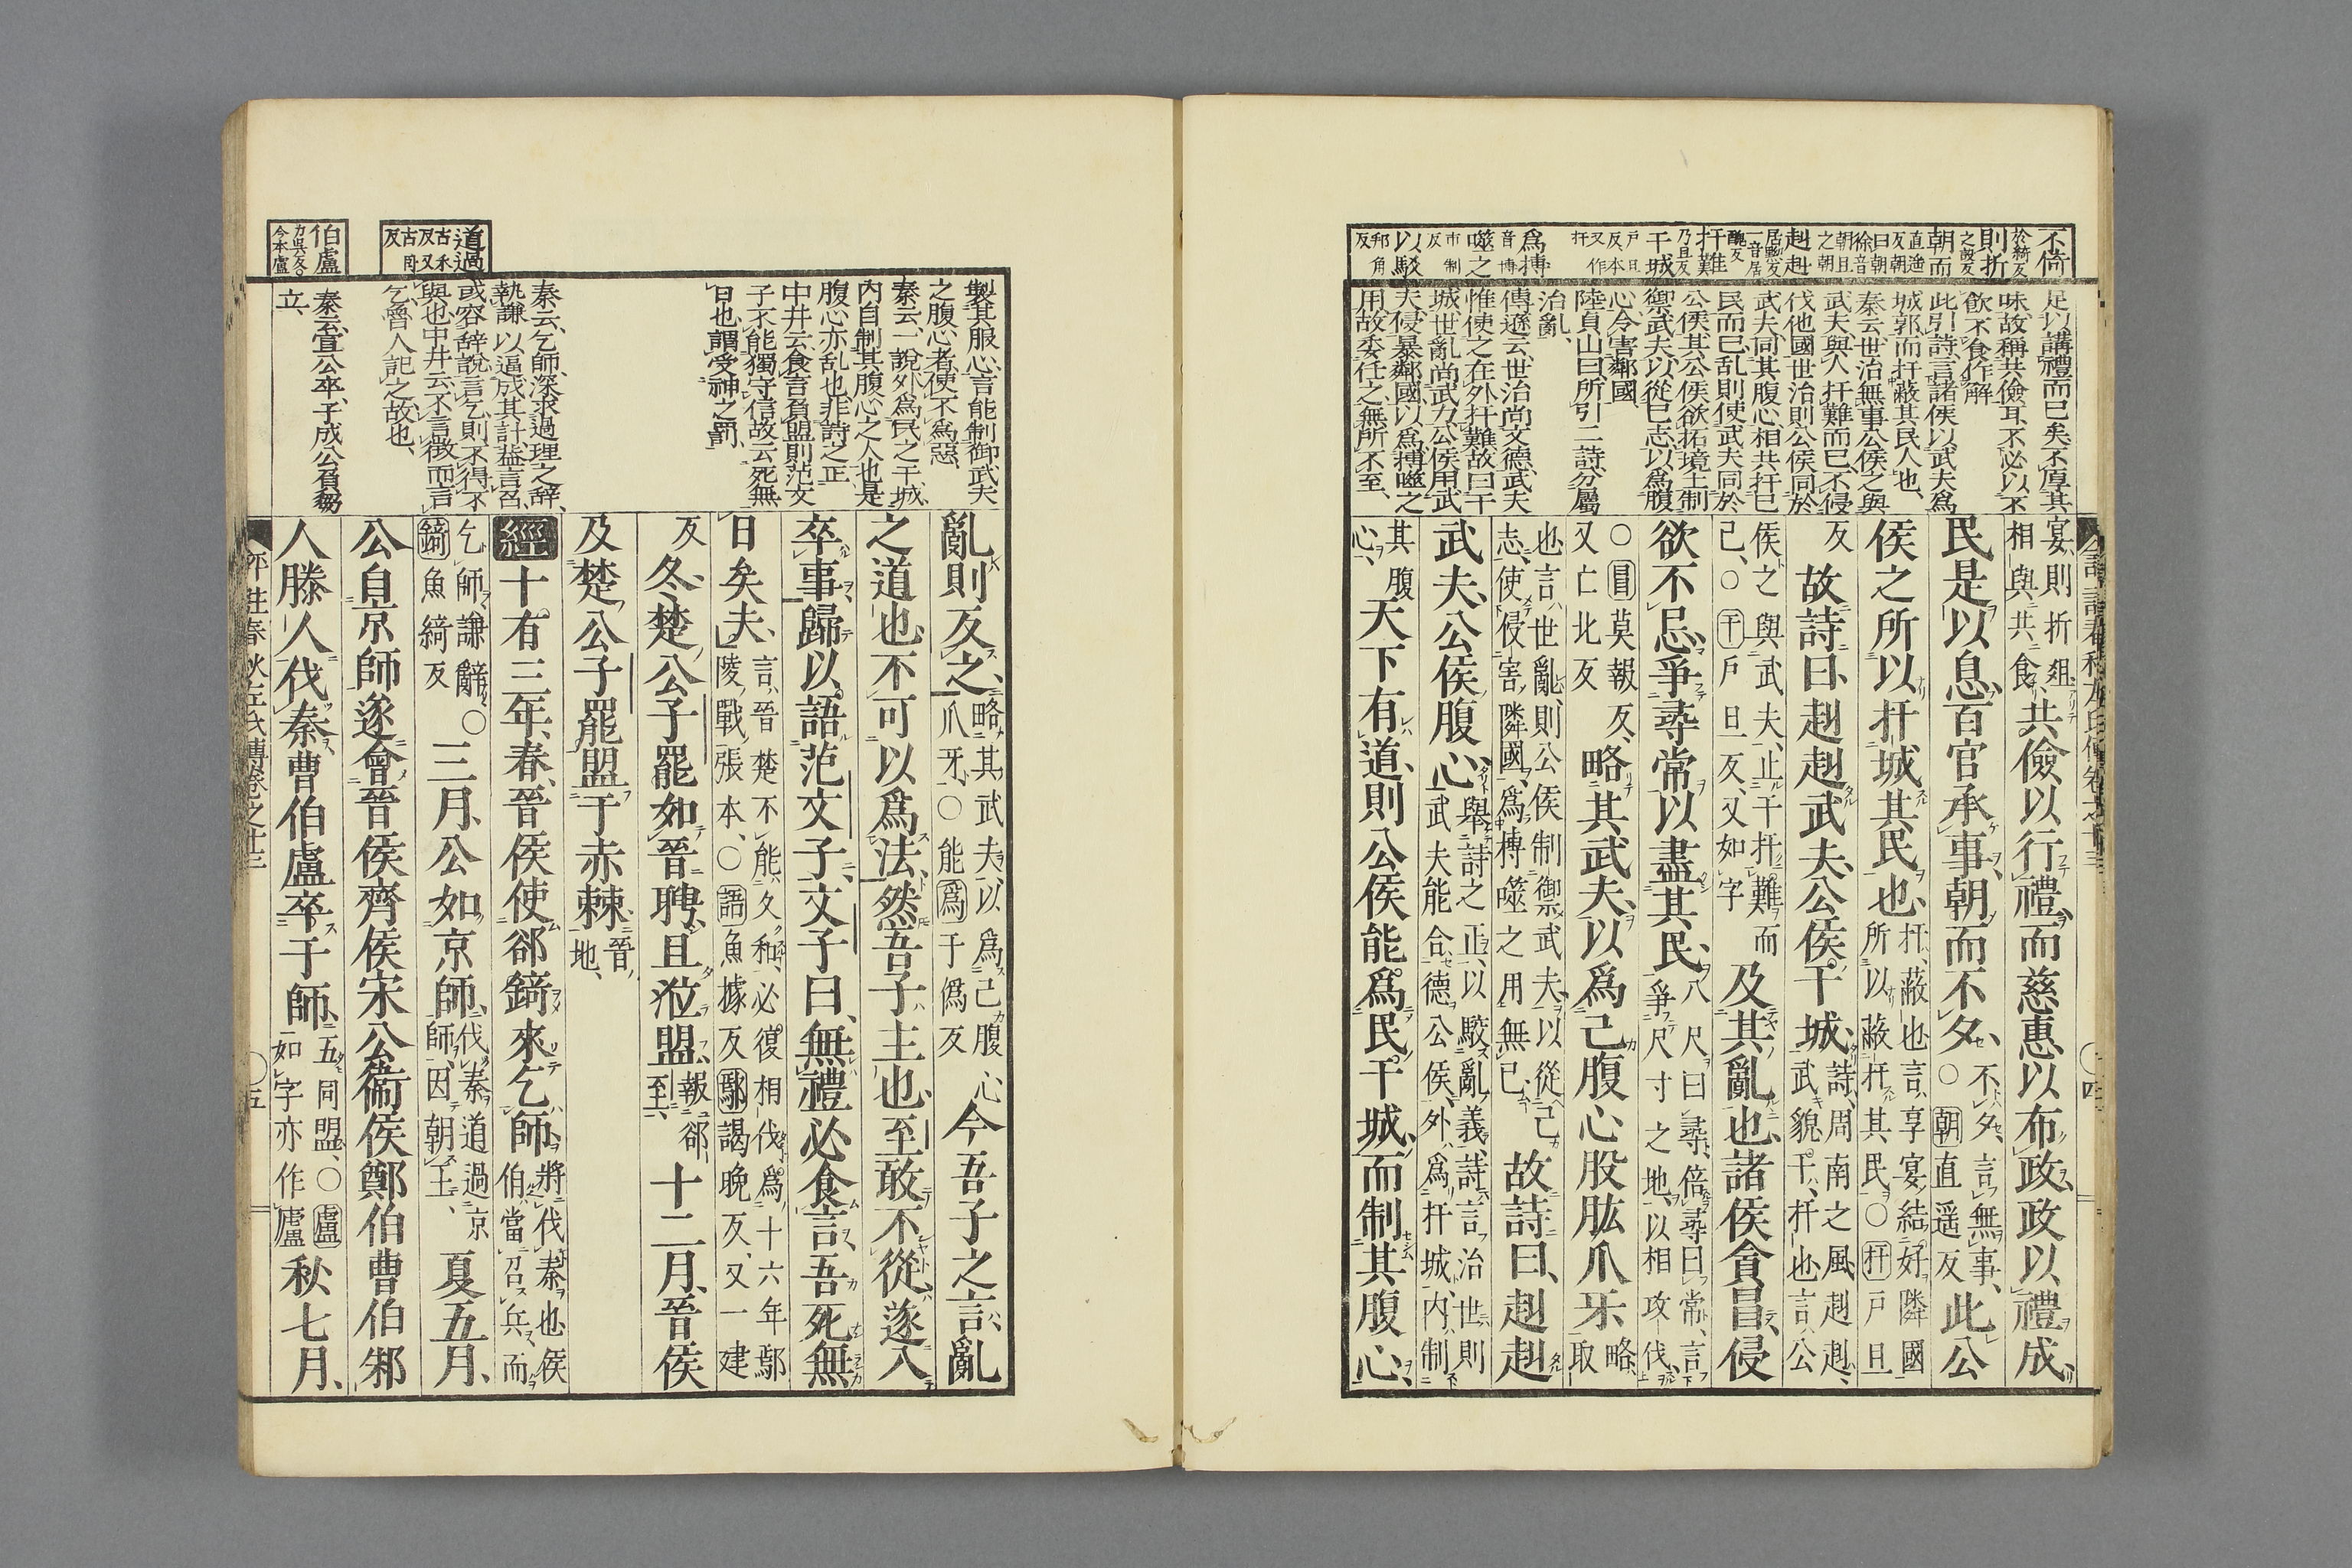 不倚
於綺反
則折
之設反
朝而
赳赳
扞難
干城
戶旦
反本
又作
扞
爲搏
音博
噬之
市制反
以駮
邦角反
足以講禮而已矣不厚其
味故稱共儉耳不必以不
飲不食作解
此引詩言諸侯以武夫爲
城郭而扞蔽其民人也
秦云世治無事公侯之與
武夫與人扞難而已不侵
伐他國世治則公侯同於
武夫同其腹心相共扞已
民而已乱則使武夫同於
公侯其公侯欲拓境土制
禦武夫以從已志以爲腹
心令害鄰國
陸貞山曰所引二詩分屬
治亂
傅遜云世治尚文德武夫
惟使之在外扞難故曰干
城世亂尚武力公侯用武
夫侵暴鄰國以爲搏噬之
用故委任之無所不至
宴則折俎
相與共食
共儉以行禮而慈惠以布政政以禮成
民是以息百官承事朝而不夕
不夕言無事
○朝直遥反
此公
侯之所以扞城其民也
扞蔽也言享宴結好隣國
所以蔽扞其民○扞戶旦
反
故詩曰赳赳武夫公侯干城
詩周南之風赳赳
武貌干扞也言公
侯之與武夫止于扞難而
已○干戶旦反又如字
及其亂也諸侯貪冒侵
欲不忌爭尋常以盡其民
八尺曰尋倍尋曰常言
爭尺寸之地以相攻伐
○冒莫報反
又亡北反
略其武夫以爲己腹心股肱爪牙
略
取
也言世亂則公侯制禦武夫以從己
志使侵害隣國爲搏噬之用無已
故詩曰赳赳
武夫公侯腹心
舉詩之正以駮亂義詩言治世則
武夫能合德公侯外爲扞城内制
其腹
心
天下有道則公侯能爲民干城而制其腹心
製其服心言能制御武夫
之腹心者使不爲惡
秦云一說外爲民之干城
内自制其腹心之人也是
腹心亦乱也非詩之正
中井云食言負盟則范文
子不能獨守信故云死無
日也謂受神之罰
道過
伯盧
力吳反○
今本盧
秦云乞師深求過理之辭
執謙以逼成其計益言召
或容辭說言乞則不得不
與也中井云不言徴而言
乞魯人記之故也
秦云宣公卒子成公負芻
立
亂則反之
略其武夫以爲己腹心
爪牙○能爲于僞反
今吾子之言亂
之道也不可以爲法然吾子主也至敢不從遂入
卒事歸以語范文子文子曰無禮必食言吾死無
日矣夫
言晉楚不能久和必復相伐爲十六年鄢
陵戰張本○語魚據反鄢謁晚反又一建
反
冬楚公子罷如晉聘且涖盟
報郤
至
十二月晉侯
及楚公子罷盟于赤棘
晉
地
經十有三年春晉侯使郤錡來乞師
將伐秦也侯
伯當召兵而
乞師謙辭○
錡魚綺反
三月公如京師
伐秦道過京
師因朝王
夏五月
公自京師遂會晉侯齊侯宋公衞侯鄭伯曹伯邾
人滕人伐秦曹伯盧卒于師
五同盟○盧
如字亦作廬
秋七月
評註春秋左氏傳卷之十三
○五